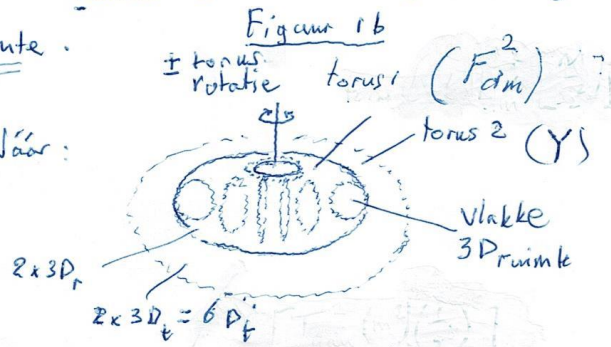 Figuur 1b
± torus rotatie
torus 1 (F²dim)
torus 2 (Y)
Vlakke
3D ruimte
2 x 3Dr
2 x 3Dt = 6Dt